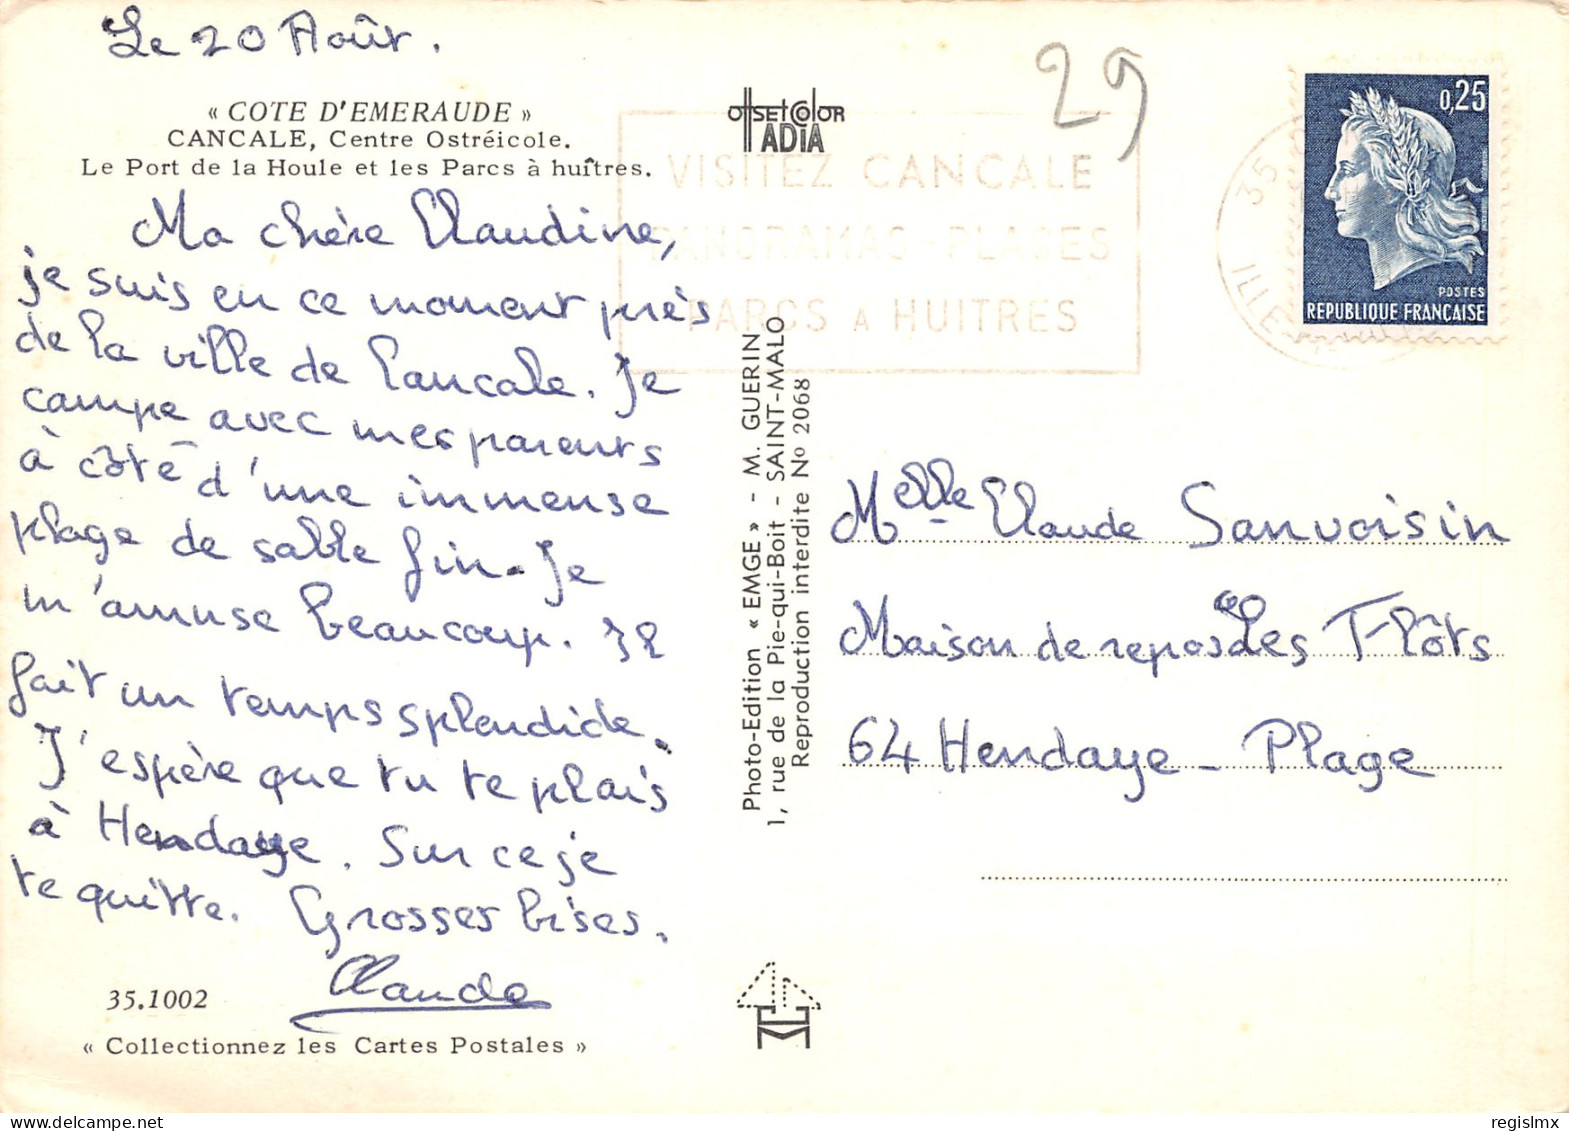 Le 20 Août.
« COTE D'EMERAUDE »
CANCALE, Centre Ostréicole.
Le Port de la Houle et les Parcs à huîtres.
Ma chère Claudine,
je suis en ce moment près
de la ville de Cancale. Je
campe avec mes parents
à côté d'une immense
plage de sable fin. Je
m'amuse beaucoup. Il
fait un temps splendide.
J'espère que tu te plais
à Hendaye. Sur ce je
te quitte. Grosses bises.
Claude
35.1002
« Collectionnez les Cartes Postales »
OffSEt ColOR
ADIA
VISITEZ CANCALE
PANORAMAS - PLAGES
PARCS A HUITRES
Photo-Edition « EMGE » - M. GUERIN
1, rue de la Pie-qui-Boit - SAINT-MALO
Reproduction interdite No 2068
29
35
ILLE
0,25
POSTES
REPUBLIQUE FRANÇAISE
Melle Claude Sanvoisin
Maison de repos Les Flôts
64 Hendaye - Plage
regislmx